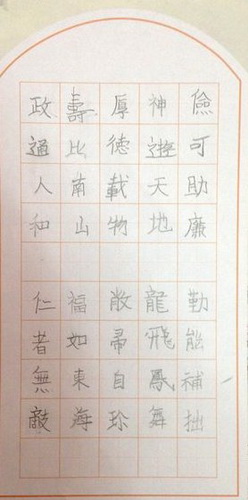 儉可助廉 勤能補拙
神遊天地 龍飛鳳舞
厚德載物 敝帚自珍
壽比南山 福如東海
政通人和 仁者無敵